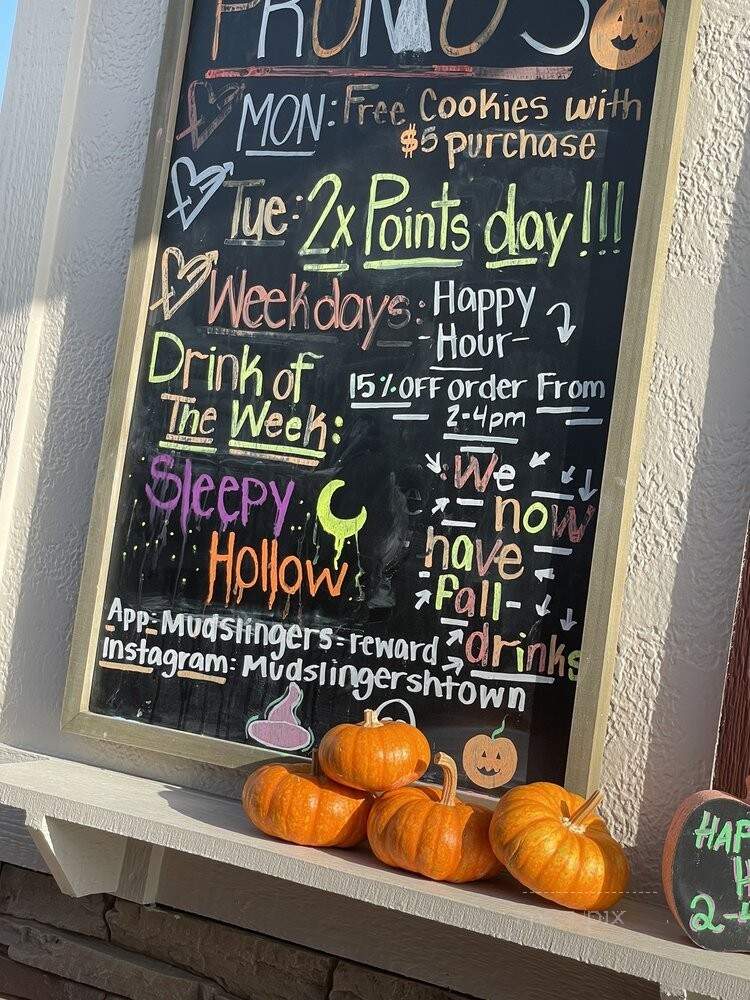 PROMO'S
MON: Free Cookies with
$5 purchase
Tue: 2x Points day!!!
Weekdays: Happy
-Hour-
15% OFF order From
2-4pm
Drink of
The Week:
Sleepy
Hollow
We
now
have
fall-
drinks
App: Mudslingers-reward
Instagram: Mudslingershtown
HAP
H
2-4